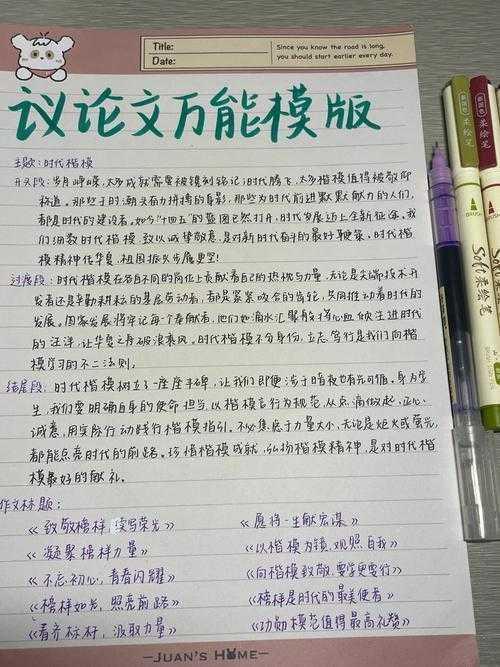 Title:
Date:
Since you know the road is long,
you should start earlier every day.
议论文万能模版
主题:时代楷模
开头段:岁月峥嵘,太多成就需要被镌刻铭记;时代腾飞,太多楷模值得被敬仰
称道。那些于时潮头奋力拼搏的身影,那些为时代前进默默献力的人们,
都是时代的建设者。如今"十四五"的蓝图已然打开,时代发展迈上全新征途。我
们细数时代楷模,致以诚挚敬意,是对新时代奋斗的最好鞭策。时代楷
模精神佑华夏,祖国振兴步履更坚!
过渡段:时代楷模在各自不同的岗位上贡献着自己的热忱与力量,无论是尖端技术开
发者还是辛勤耕耘的基层劳动者,都是紧紧咬合的齿轮,共同推动着时代的
发展。国家发展将牢记每一个奉献者,他们如滴水汇聚般将心血倾注进时代
的汪洋,让华夏之舟破浪乘风。时代楷模不分身份,立志笃行是我们向楷
模学习的不二法则。
结尾段:时代楷模树立了一座座丰碑,让我们即便涉于暗夜也有光可循。身为学
生,我们要明确自身的使命担当,以楷模言行为规范,从点滴做起,正心
诚意,用实际行动践行楷模指引。不必焦虑于力量大小,无论是炬火或萤光,
都能点亮时代的前路。珍惜楷模成就,弘扬楷模精神,是对时代楷
模最好的献礼。
作文标题:
《致敬榜样,续写荣光》
《愿将一生献宏谋》
《凝聚榜样力量》
《以楷模为镜,观照自我》
《不忘初心,青春闪耀》
《向楷模致敬,要学更要行》
《榜样如光,照亮前路》
《榜样是时代的最美使者》
《看齐标杆,汲取力量》
《功勋模范值得最高礼赞》
JUAN'S HOME